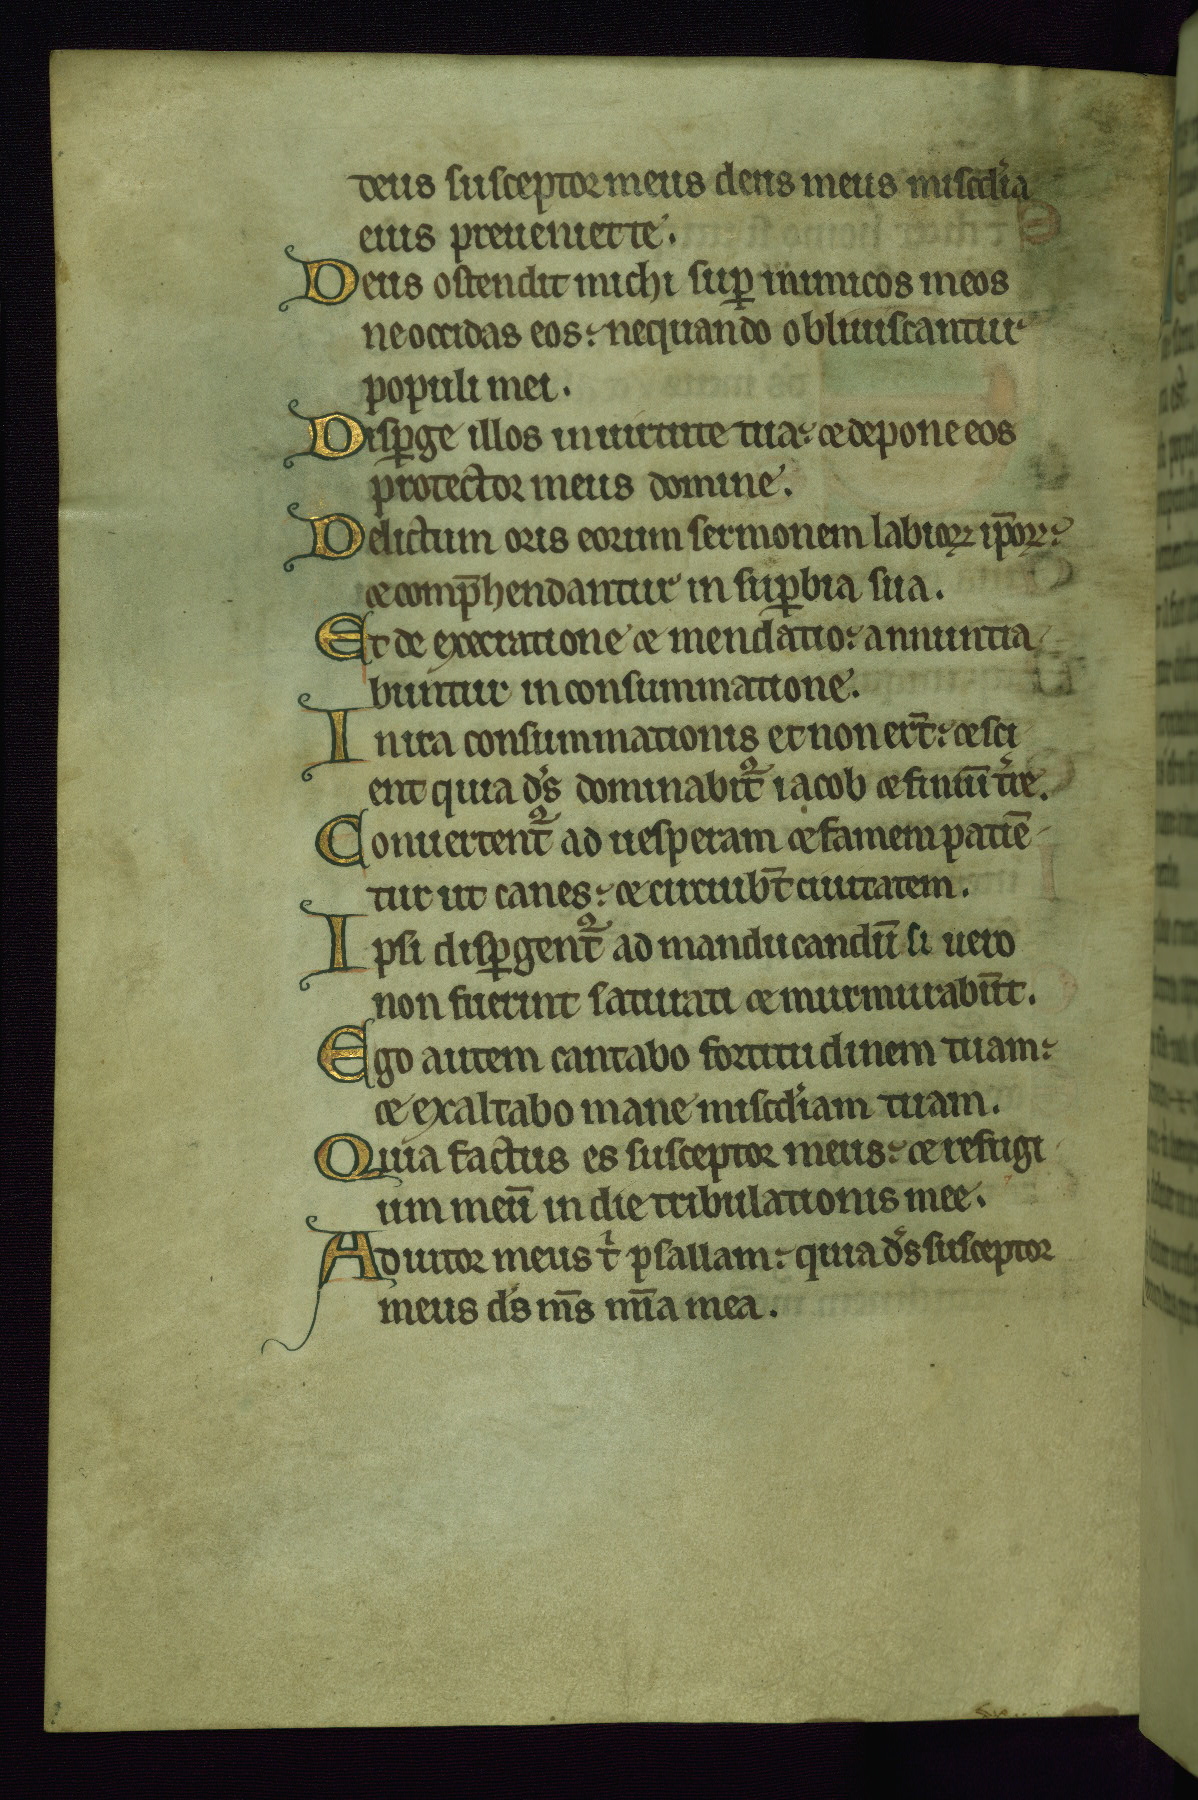 deus susceptor meus deus meus miscd̓ia
eius preueniet te.
Deus ostendit michi sup̱ inimicos meos
ne occidas eos: nequando obliuiscantur
populi mei.
Disp̱ge illos in uirtute tua: & depone eos
protector meus domine.
Delictum oris eorum sermonem labioꝝ ip̄oꝝ:
& comp̄hendantur in sup̱bia sua.
Et de execratione & mendatio: annuntia
buntur in consummatione.
In ira consummationis et non er̄t: & sci
ent quia d̓s dominabit᷑ iacob & finiū t̓re.
Conuertent᷑ ad uesperam & famem patiē
tur ut canes: & circuib̄t ciuitatem.
Ipsi disp̱gent᷑ ad manducandū si uero
non fuerint saturati & murmurabūt.
Ego autem cantabo fortitudinem tuam:
& exaltabo mane miscd̓iam tuam.
Quia factus es susceptor meus: & refugi
um meū in die tribulationis mee.
Adiutor meus t̓ psallam: quia d̓s susceptor
meus d̓s m̄s mīa mea.